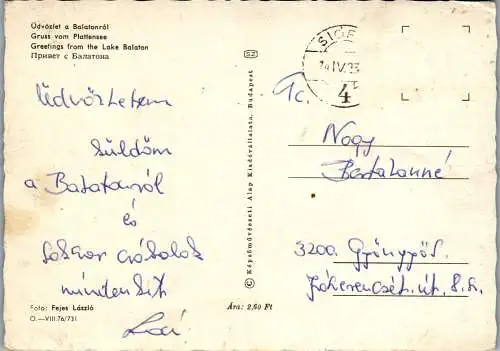 Üdvözlet a Balatonról
Gruss vom Plattensee
Greetings from the Lake Balaton
Привет с Балатона
Üdvözletem
küldöm
a Balatonról
és
sokszor csókolok
mindenkit
Foto: Fejes László
O.—VIII.76/731
© Képzőművészeti Alap Kiadóvállalata, Budapest
Ára: 2,60 Ft
SIÓF
IV.23
4
Tc.
Nagy
Bertalanné
3200. Gyöngyös.
út. 8.